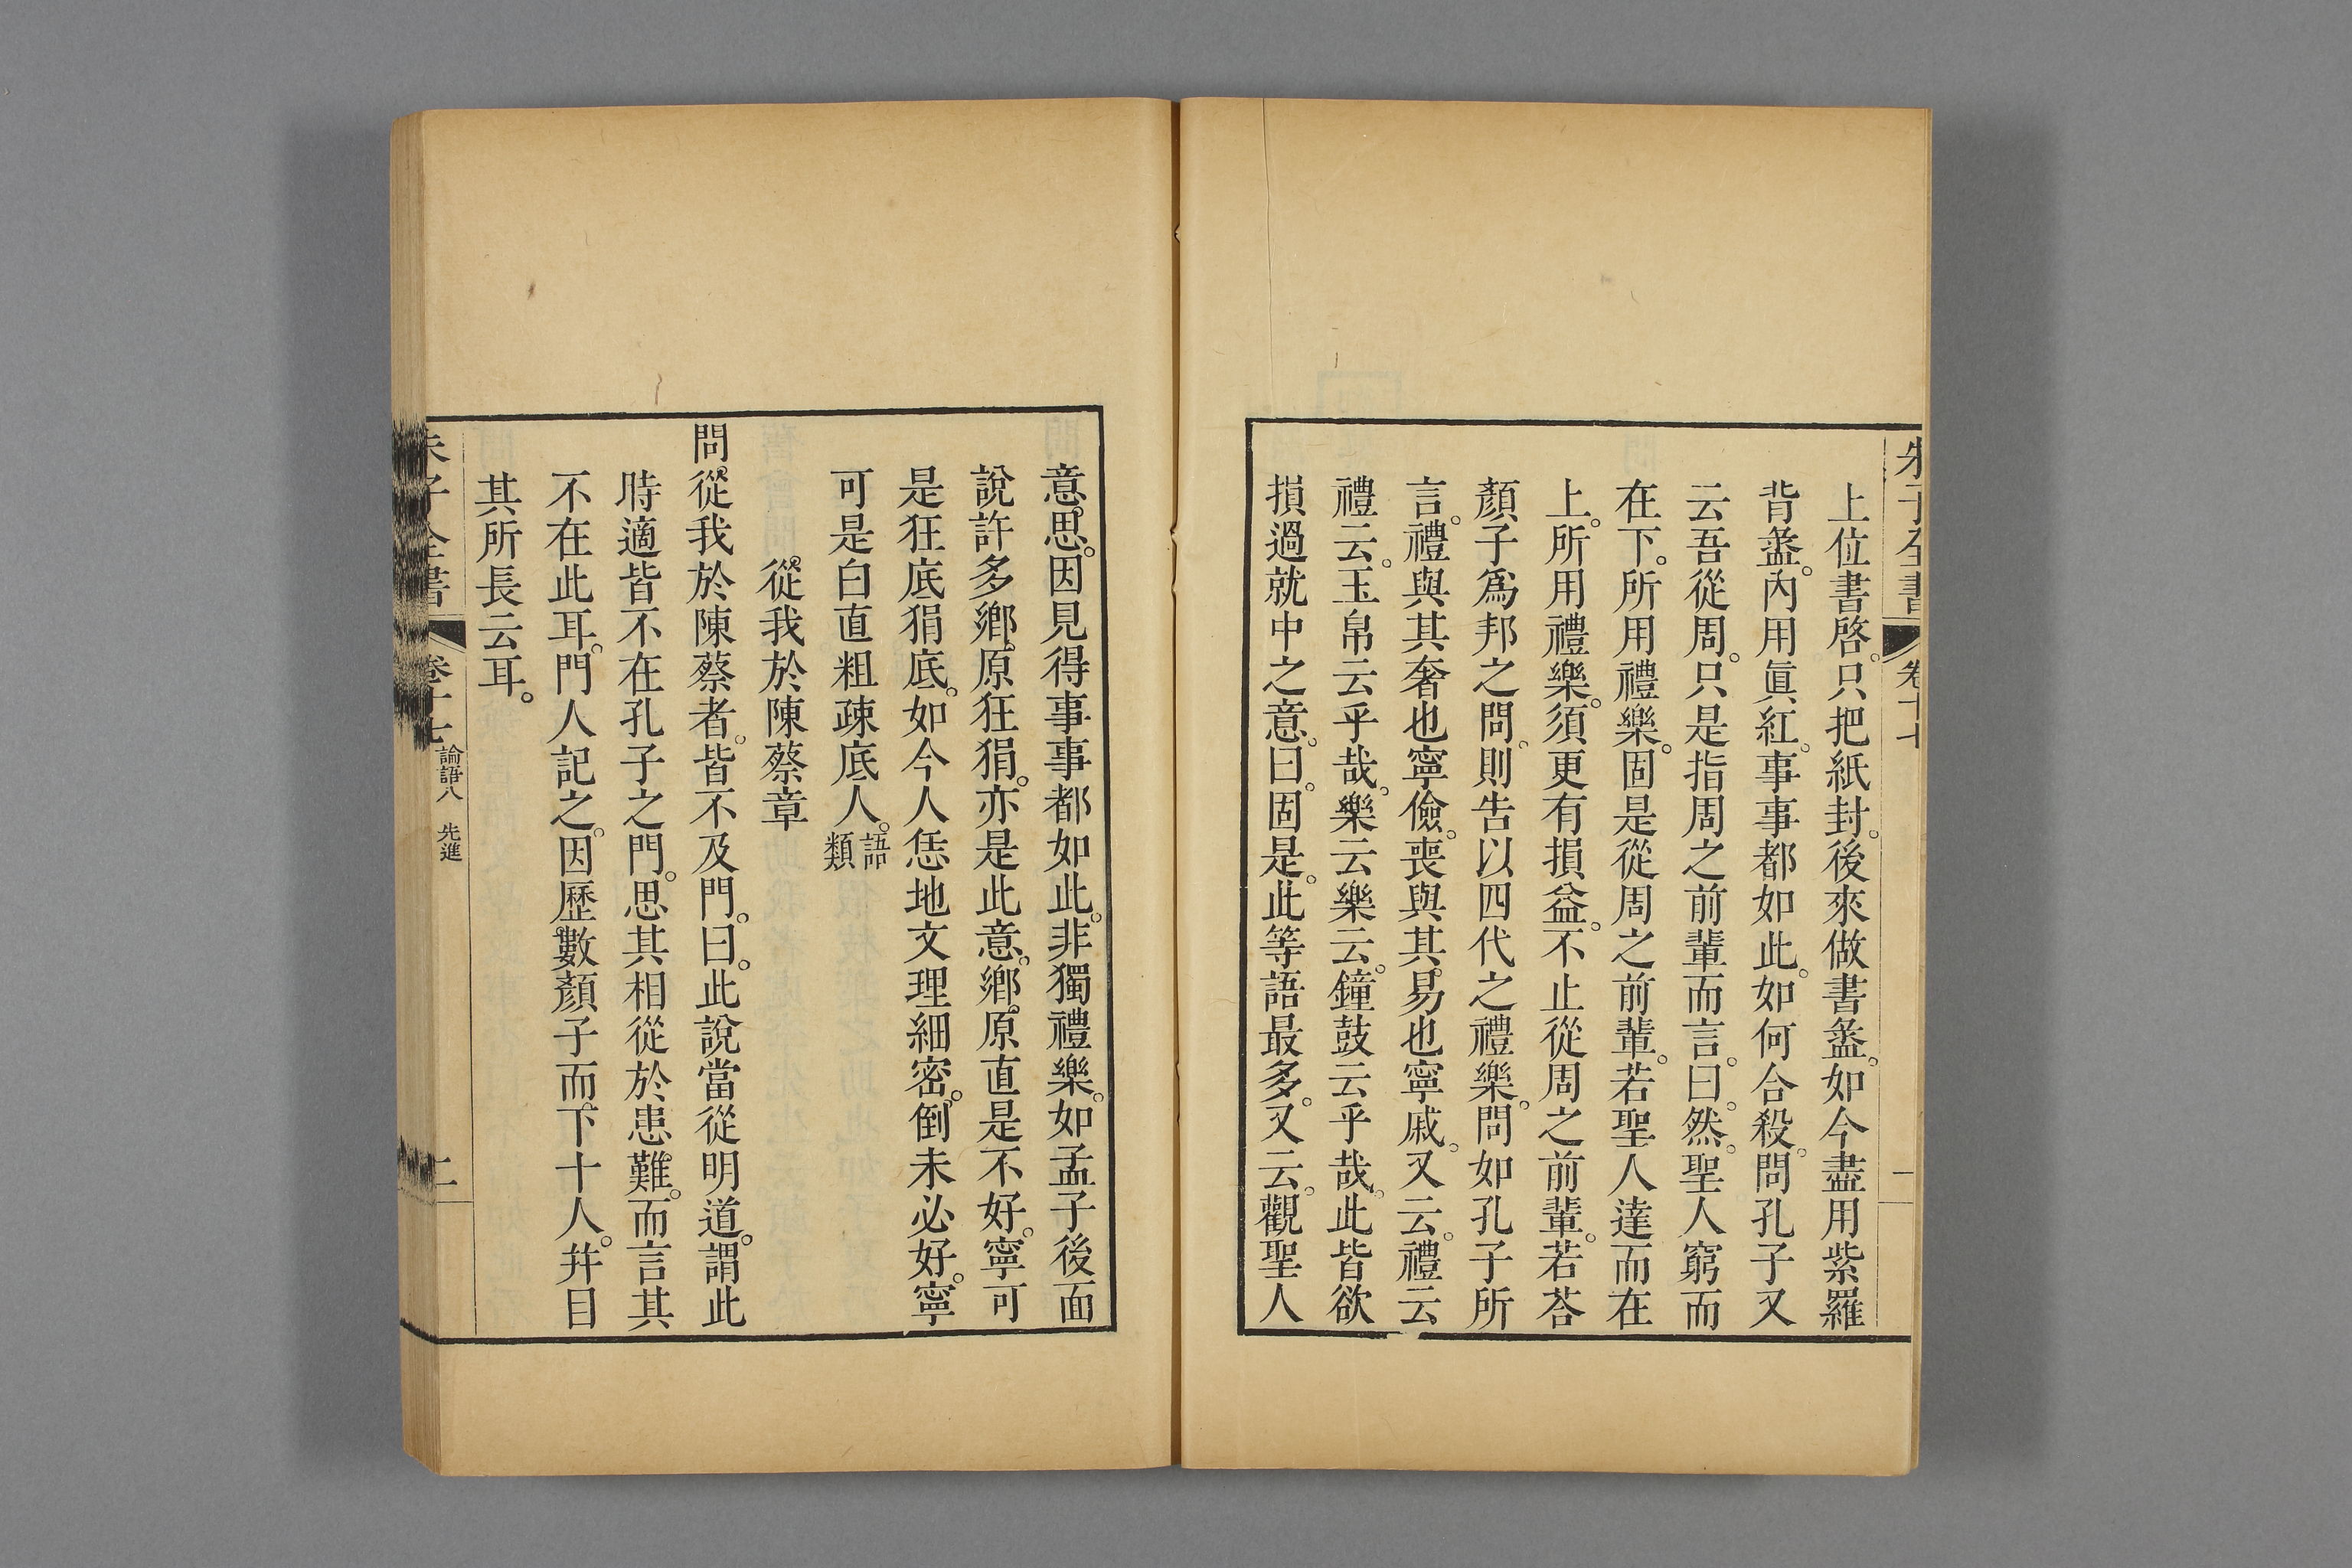 朱子全書 卷十七 一
上位書啓。只把紙封。後來做書盝。如今盡用紫羅
背盝。內用眞紅。事事都如此。如何合殺。問孔子又
云吾從周。只是指周之前輩而言。曰。然。聖人窮而
在下。所用禮樂。固是從周之前輩。若聖人達而在
上。所用禮樂。須更有損益。不止從周之前輩。若荅
顏子爲邦之問。則告以四代之禮樂。問如孔子所
言。禮與其奢也寧儉。喪與其易也寧戚。又云。禮云
禮云。玉帛云乎哉。樂云樂云。鐘鼓云乎哉。此皆欲
損過就中之意。曰。固是。此等語最多。又云。觀聖人
意思。因見得事事都如此。非獨禮樂。如孟子後面
說許多鄉原狂狷。亦是此意。鄉原直是不好。寧可
是狂底狷底。如今人恁地文理細密。倒未必好。寧
可是白直粗疎底人。語類
從我於陳蔡章
問從我於陳蔡者。皆不及門。曰。此說當從明道。謂此
時適皆不在孔子之門。思其相從於患難。而言其
不在此耳。門人記之。因歷數顏子而下十人。并目
其所長云耳。
朱子全書 卷十七 論語八 先進 二